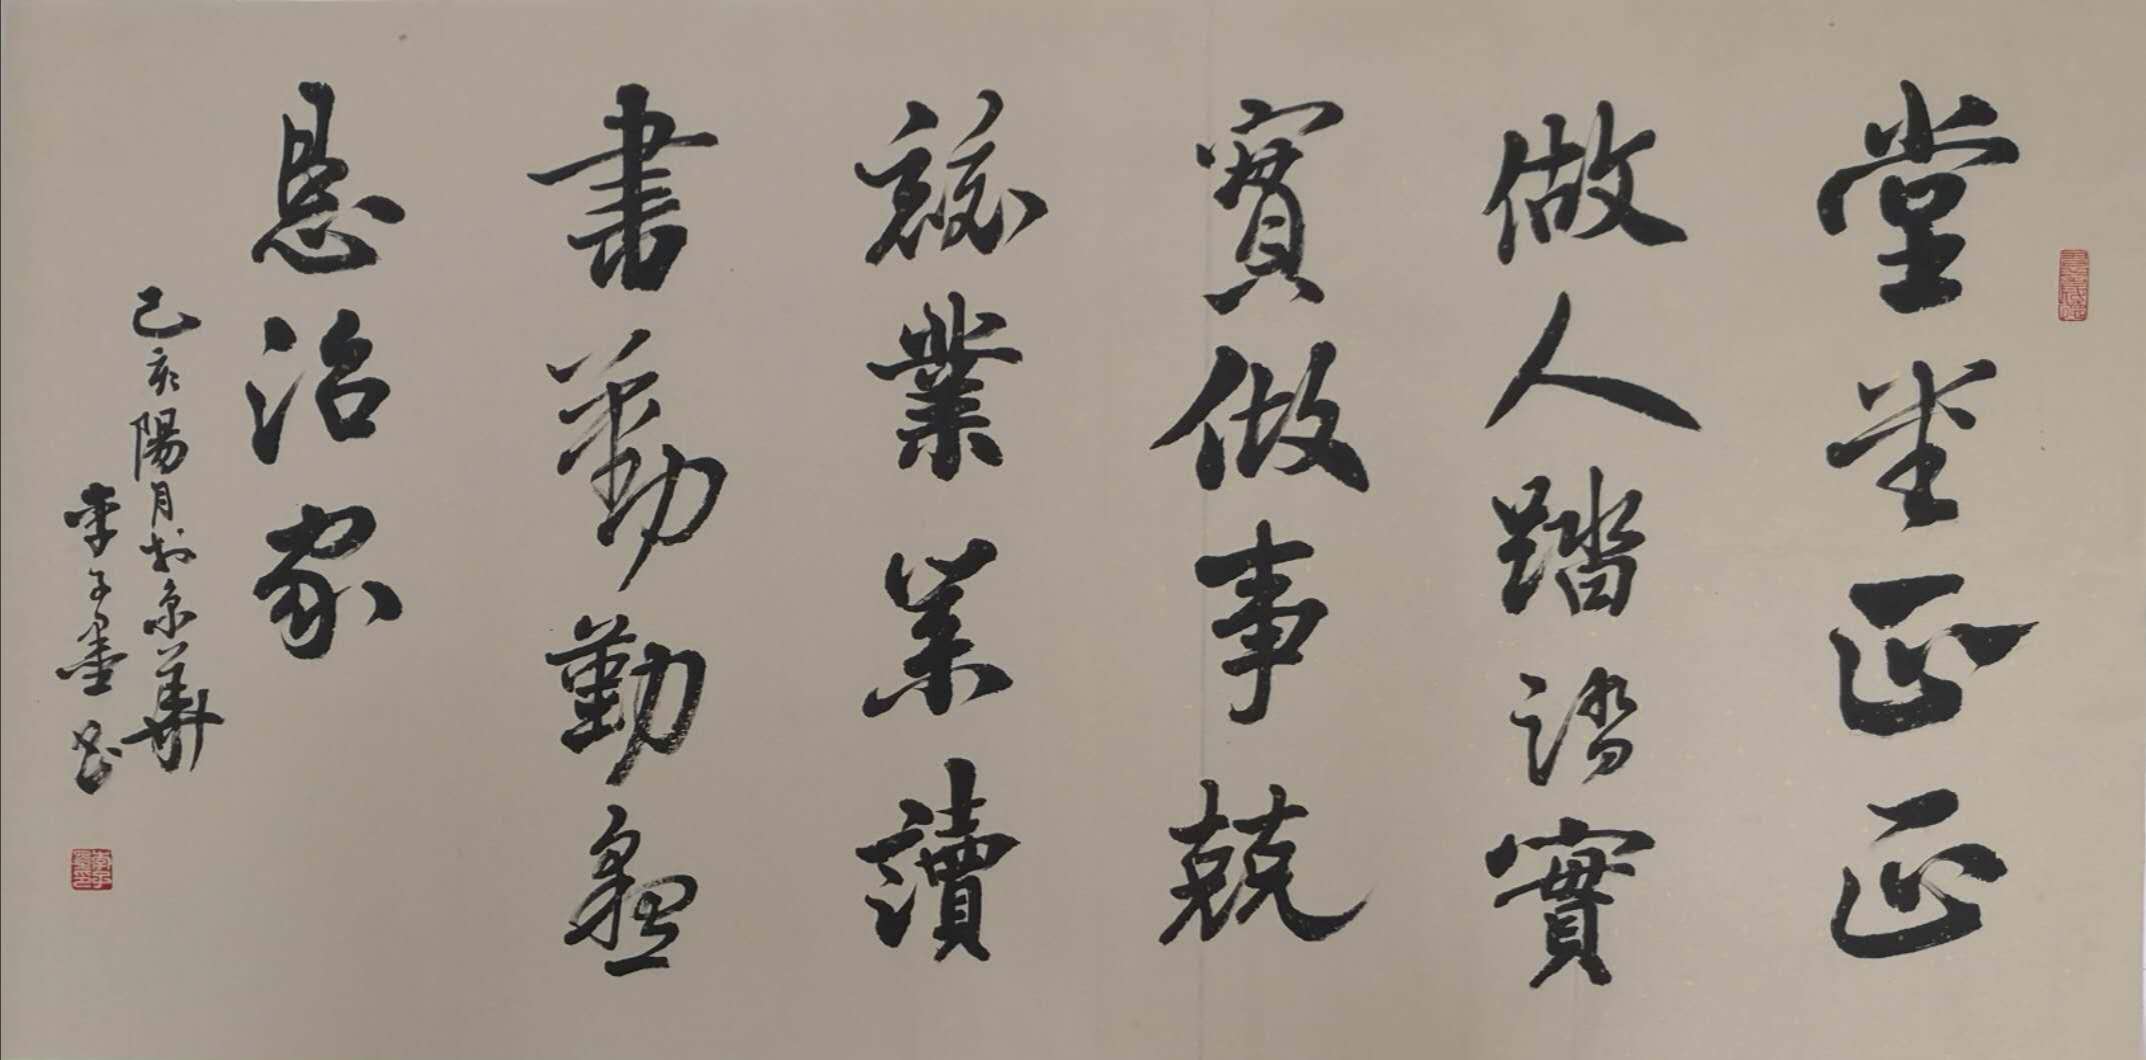 堂堂正正
做人踏踏實
實做事兢
兢業業讀
書勤勤懇
恳治家
己亥陽月於京華
李子墨书